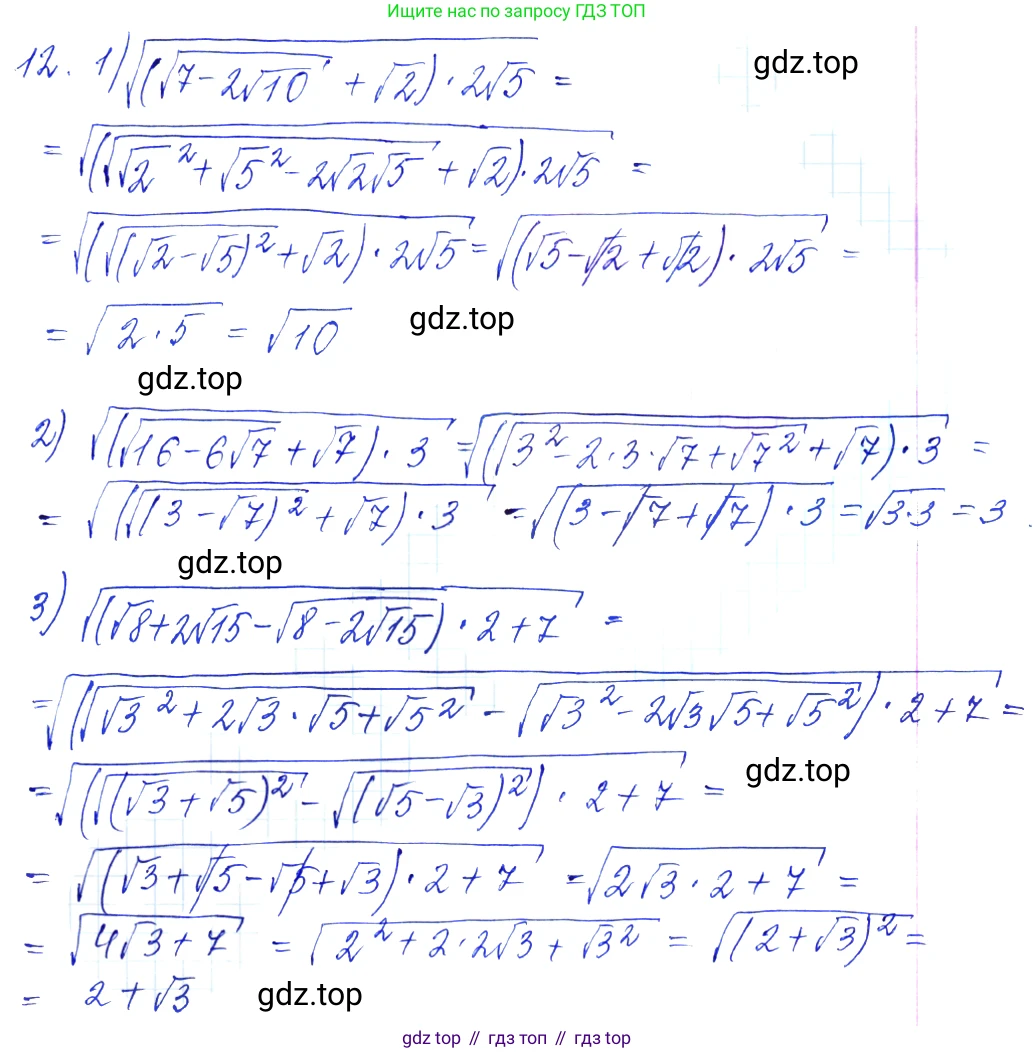 Ищите нас по запросу ГДЗ ТОП
12. 1) √((√(7-2√10) + √2)·2√5) =
gdz.top
= √((√(√2² + √5² - 2√2√5) + √2)·2√5) =
= √((√((√2-√5)²) + √2)·2√5) = √((√5-√2+√2)·2√5) =
= √(2·5) = √10
gdz.top
gdz.top
2) √((√(16-6√7) + √7)·3) = √((√(3²-2·3·√7+√7²) + √7)·3) =
= √((√((3-√7)²) + √7)·3) = √((3-√7+√7)·3) = √(3·3) = 3.
gdz.top
3) √((√8+2√15 - √(8-2√15))·2+7) =
= √((√(√3² + 2√3·√5+√5²) - √(√3²-2√3√5+√5²))·2+7) =
= √((√((√3+√5)²) - √((√5-√3)²))·2+7) =
gdz.top
= √((√3+√5-√5+√3)·2+7) = √(2√3·2+7) =
= √(4√3+7) = √(2²+2·2√3+√3²) = √((2+√3)²) =
= 2+√3
gdz.top
gdz.top // гдз топ // гдз.top